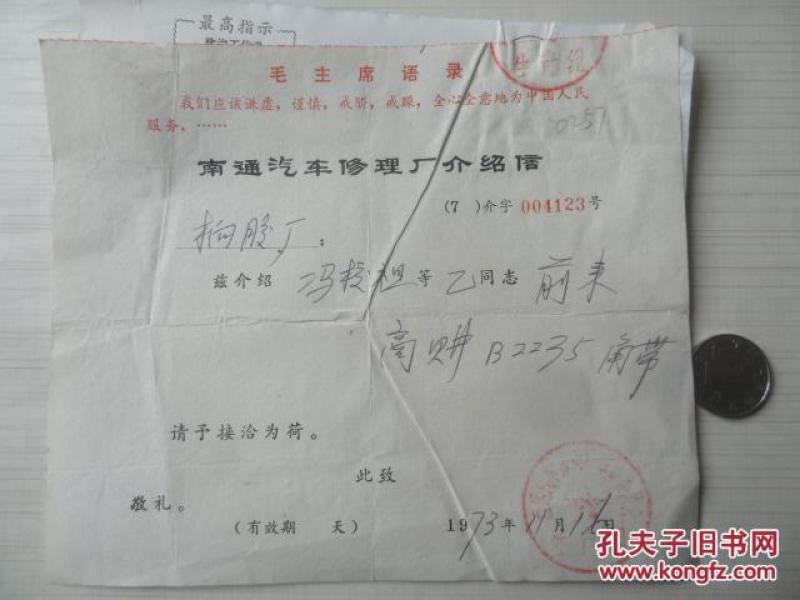 最高指示
毛主席语录
我们应该谦虚，谨慎，戒骄，戒躁，全心全意地为中国人民
服务，……
0257
南通汽车修理厂介绍信
(7 )介字 004123号
厂：
兹介绍 冯 祖等 乙同志 前来
商购 B2235 角带
请予接洽为荷。
此致
敬礼。
(有效期 天) 1973年11月 日
孔夫子旧书网
www.kongfz.com